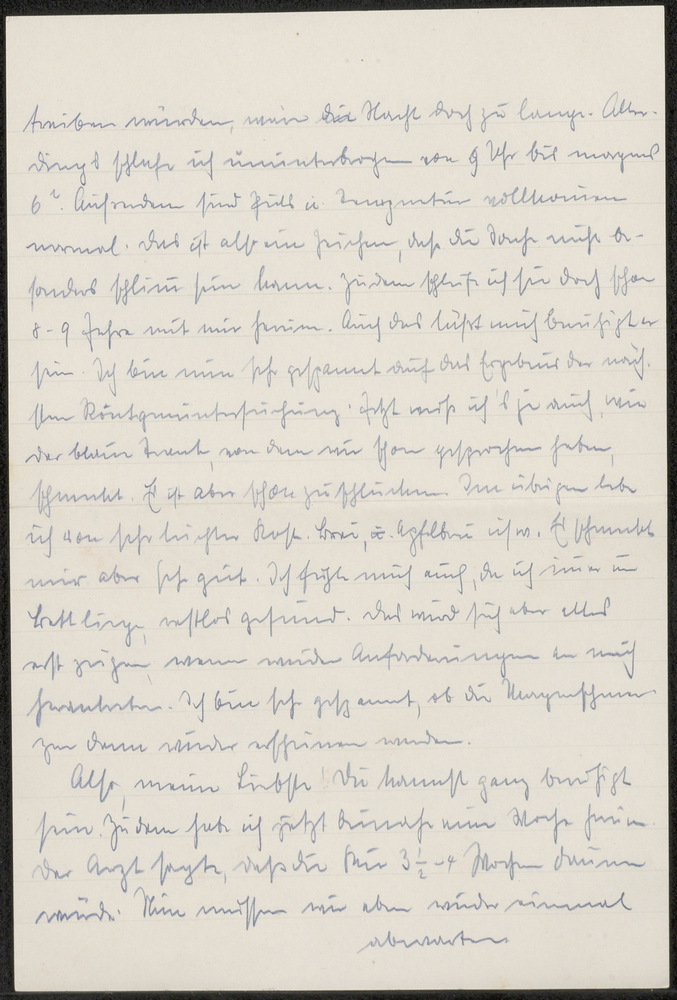 treiben würden, wäre die Nacht doch zu lange. Aller-
dings schlafe ich ununterbrochen von 9 Uhr bis morgens
6 Uhr. Außerdem sind Puls u. Temperatur vollkommen
normal. Das ist also ein Zeichen, daß die Sache nicht be-
sonders schlimm sein kann. Zudem schleife ich sie doch schon
8-9 Jahre mit mir herum. Auch das läßt mich beruhigter
sein. Ich bin nun sehr gespannt auf das Ergebnis der näch-
sten Röntgenuntersuchung! Jetzt weiß ich's ja auch, wie
der blaue Trank, von dem wir schon gesprochen haben,
schmeckt. Er ist aber schön zu schlucken. Im übrigen lebe
ich von sehr leichter Kost. Brei, u. Apfelbrei usw. Es schmeckt
mir aber sehr gut. Ich fühle mich auch, da ich immer im
Bett liege, restlos gesund. Das wird sich aber alles
erst zeigen, wenn wieder Anforderungen an mich
herantreten. Ich bin sehr gespannt, ob die Magenschmer-
zen dann wieder erscheinen werden.
Also, meine Liebste! Du kannst ganz beruhigt
sein. Zudem habe ich jetzt beinahe eine Woche herum.
Der Arzt sagte, daß die Kur 3 1/2 - 4 Wochen dauern
würde. Nun müssen wir eben wieder einmal
abwarten